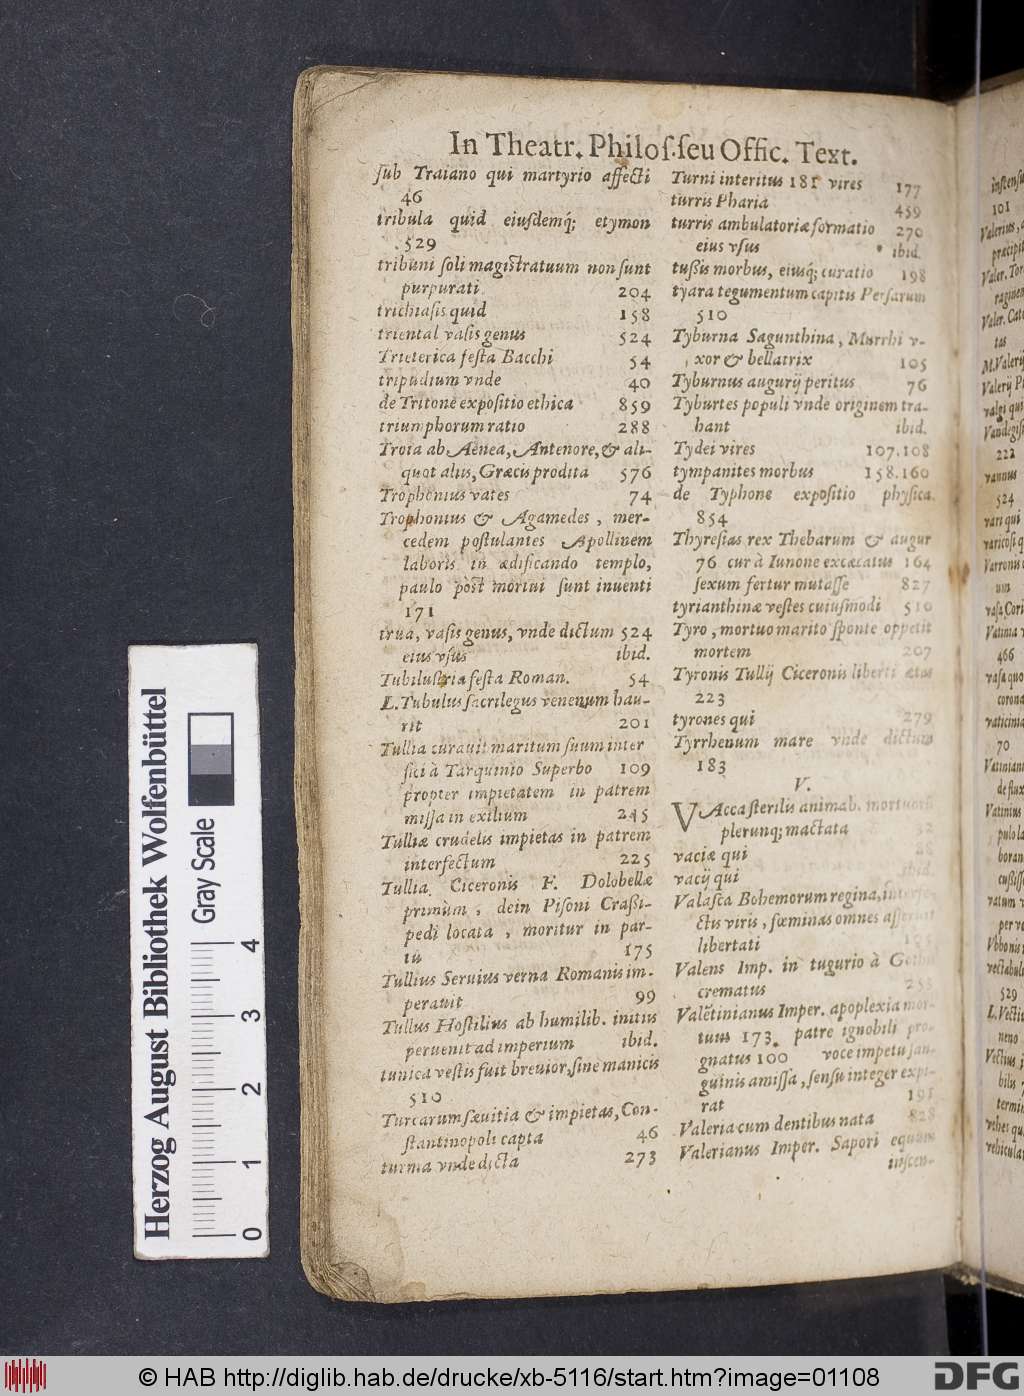 In Theatr. Philoſ. ſeu Offic. Text.
ſub Traiano qui martyrio affecti
46
tribula quid eiuſdemq́; etymon
529
tribuni ſoli magiſtratuum non ſunt
purpurati 204
trichiaſis quid 158
triental vaſis genus 524
Trieterica feſta Bacchi 54
tripudium vnde 40
de Tritone expoſitio ethica 859
triumphorum ratio 288
Troia ab Aenea, Antenore, & ali-
quot aliis, Græcis prodita 576
Trophonius vates 74
Trophonius & Agamedes, mer-
cedem poſtulantes Apollinem
laboris in ædificando templo,
paulo pòſt mortui ſunt inuenti
171
trua, vaſis genus, vnde dictum 524
eius vſus ibid.
Tubiluſtria feſta Roman. 54
L. Tubulus ſacrilegus venenum hau-
rit 201
Tullia curauit maritum ſuum inter
fici à Tarquinio Superbo 109
propter impietatem in patrem
miſſa in exilium 245
Tulliæ crudelis impietas in patrem
interfectum 225
Tullia Ciceronis F. Dolobellæ
primùm, dein Piſoni Craßi-
pedi locata, moritur in par-
tu 175
Tullius Seruius verna Romanis im-
perauit 99
Tullus Hoſtilius ab humilib. initiis
peruenit ad imperium ibid.
tunica veſtis fuit breuior, ſine manicis
510
Turcarum ſæuitia & impietas, Con-
ſtantinopoli capta 46
turma vnde dicta 273
Turni interitus 181 vires 177
turris Pharia 459
turris ambulatoriæ formatio 270
eius vſus ibid.
tußis morbus, eiusq́; curatio 198
tyara tegumentum capitis Perſarum
510
Tyburna Sagunthina, Murrhi v-
xor & bellatrix 105
Tyburnus augurij peritus 76
Tyburtes populi vnde originem tra-
hant ibid.
Tydei vires 107.108
tympanites morbus 158.160
de Typhone expoſitio phyſica.
854
Thyreſias rex Thebarum & augur
76 cur à Iunone excæcatus 164
ſexum fertur mutaſſe 827
tyrianthinæ veſtes cuiuſmodi 510
Tyro, mortuo marito ſponte oppetit
mortem 207
Tyronis Tullij Ciceronis liberti ætas
223
tyrones qui 279
Tyrrhenum mare vnde dictum
183
V.
VAcca ſterilis animab. mortuorū
plerunq; mactata
vaciæ qui
vacij qui
Valaſca Bohemorum regina, interfe-
ctis viris, fœminas omnes aſſeruit
libertati
Valens Imp. in tugurio à Gothis
crematus 253
Valẽtinianus Imper. apoplexia mor-
tuus 173. patre ignobili pro-
gnatus 100 voce impetu ſan-
guinis amiſſa, ſenſu integer expi-
rat 191
Valeria cum dentibus nata 828
Valerianus Imper. Sapori equum
inſcen-
inſcenſu
101
Valerius,
præcipit
Valer. Tor
Valer. Cato
tas
M. Valerij
valgi qui
222
vannus
524
vari qui
varicoſi q
466
70
529
Herzog August Bibliothek Wolfenbüttel
Gray Scale
0 1 2 3 4
© HAB http://diglib.hab.de/drucke/xb-5116/start.htm?image=01108
DFG